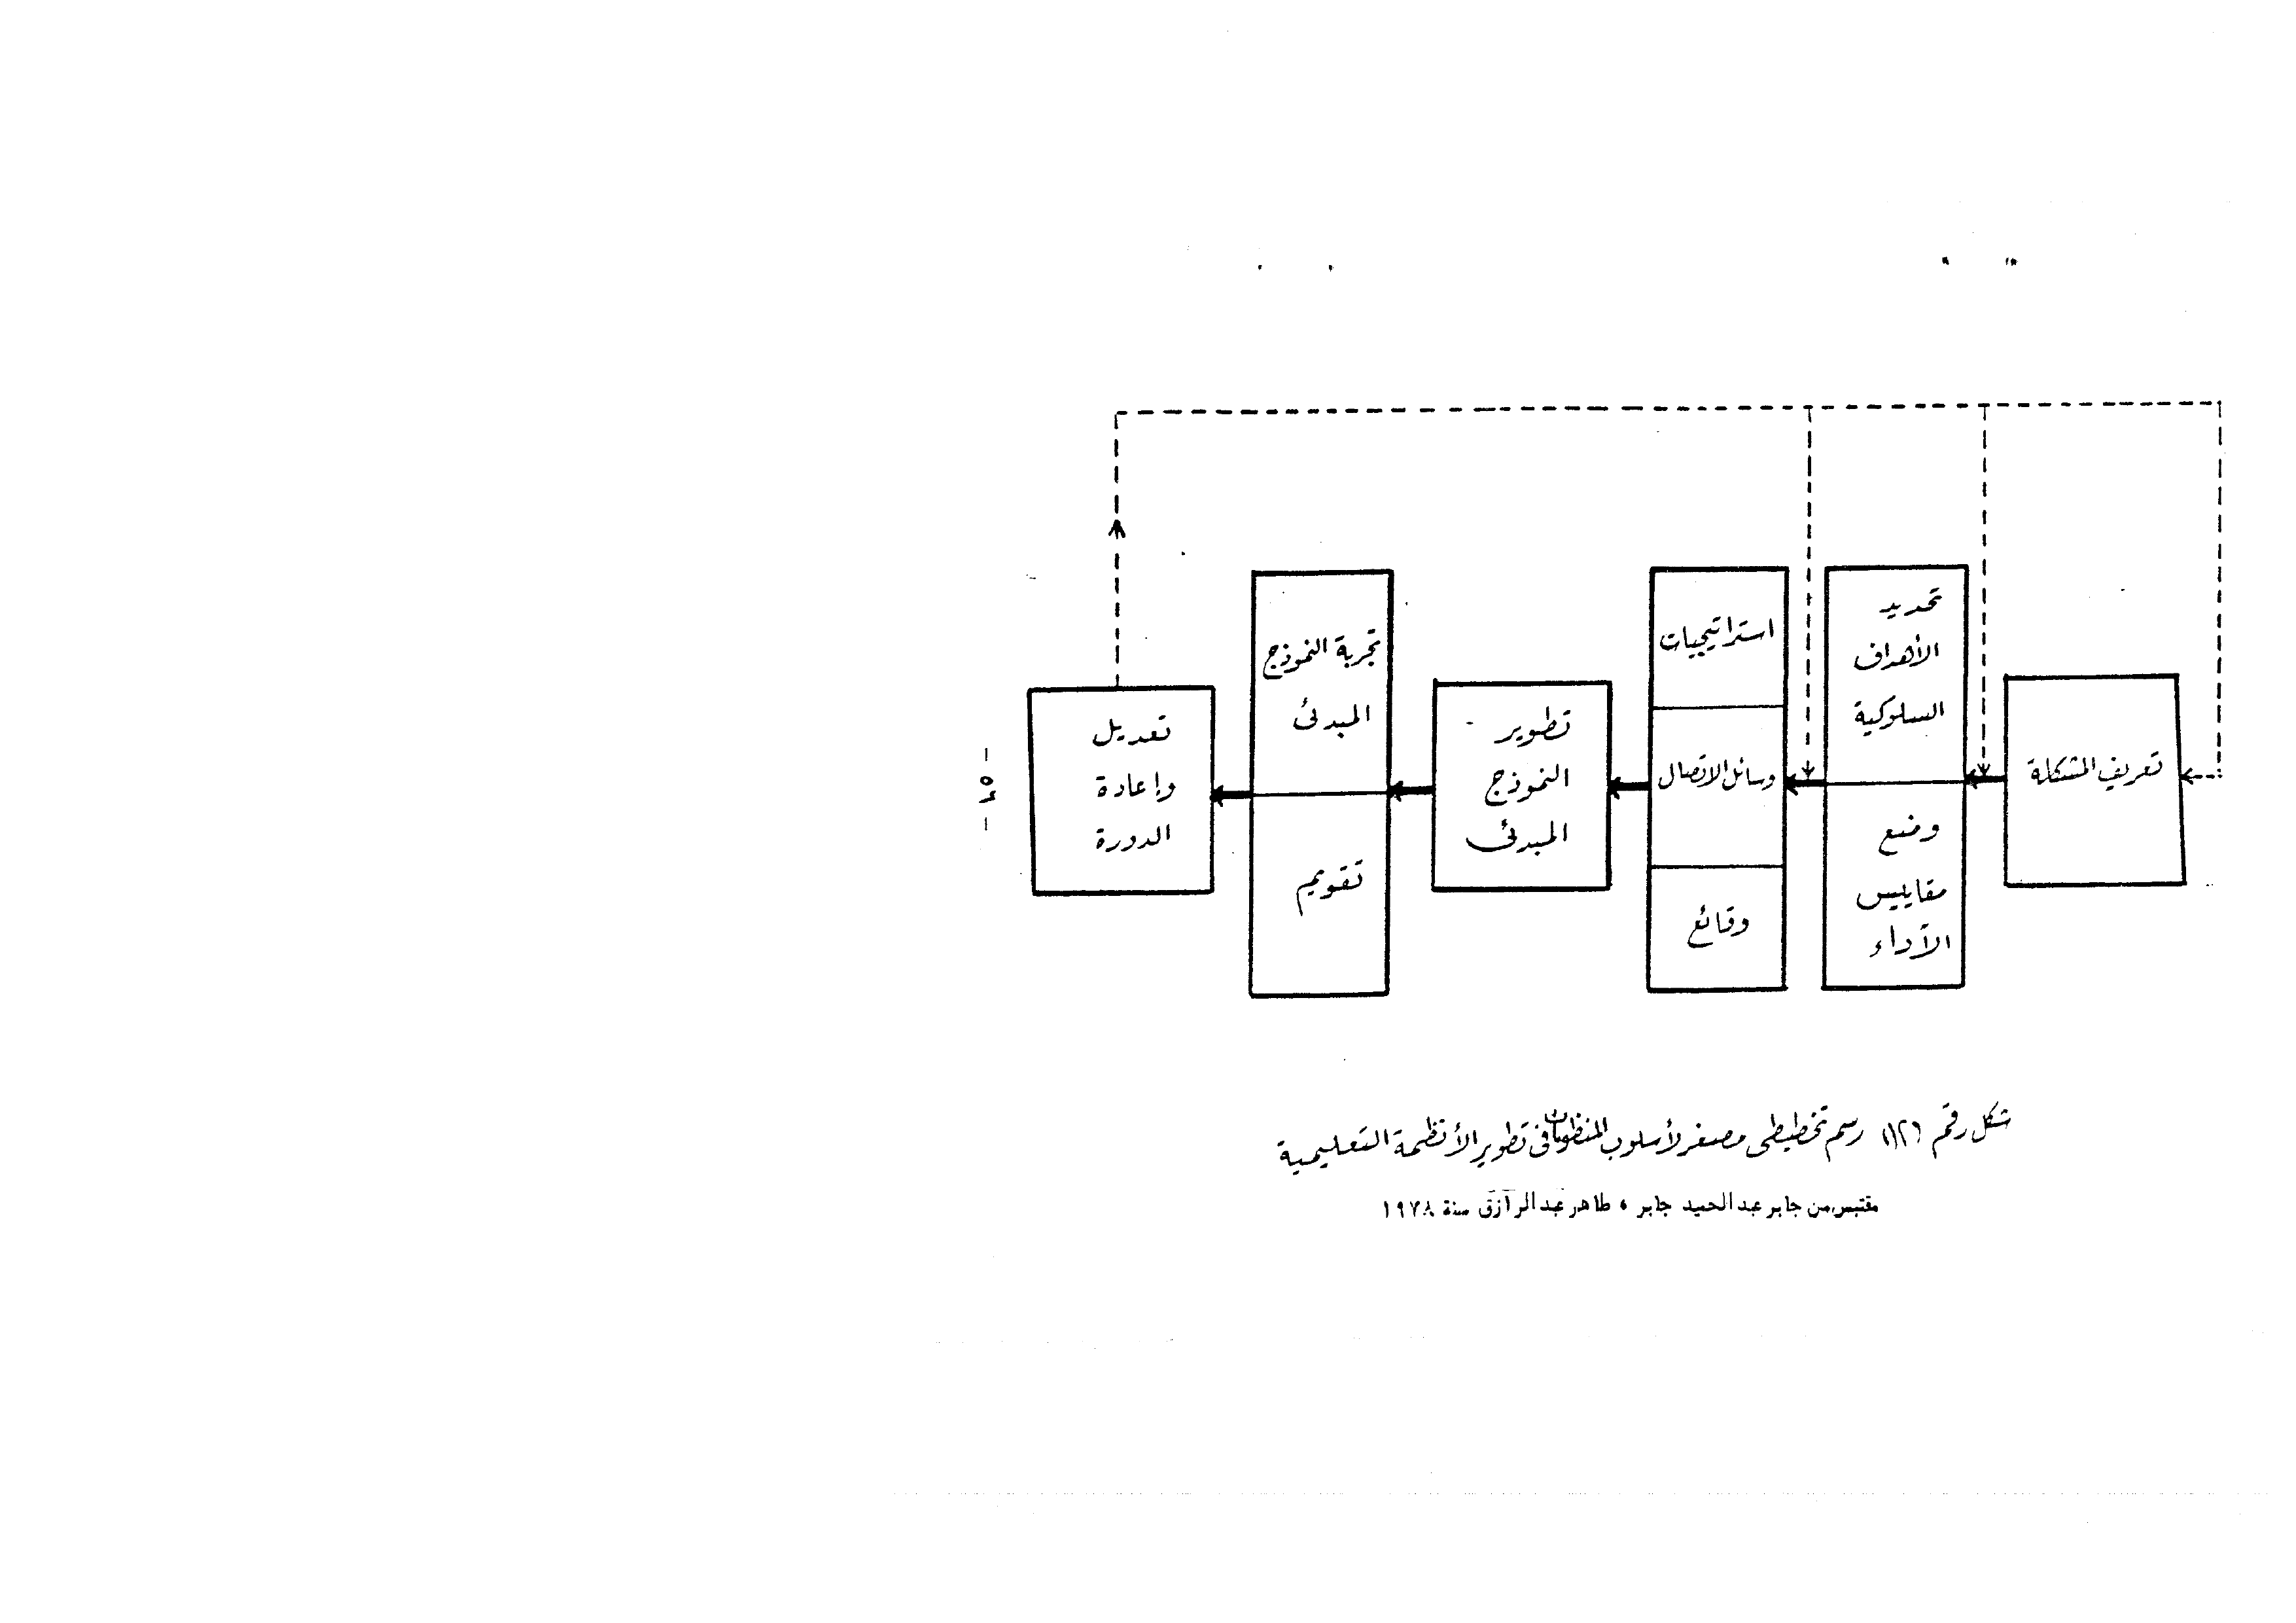 تعريف المشكلة
تحديد
الأهداف
السلوكية
وضع
مقاييس
الأداء
استراتيجيات
وسائل الاتصال
وقائع
تطوير
النموذج
المبدئى
تجربة النموذج
المبدئى
تقويم
تعديل
وإعادة
الدورة
شكل رقم رسم تخطيطى مصغر لأسلوب المنظومات فى تطوير الأنظمة التعليمية
مقتبس من جابر عبد الحميد جابر ، طاهر عبد الرازق سنة ١٩٧٨